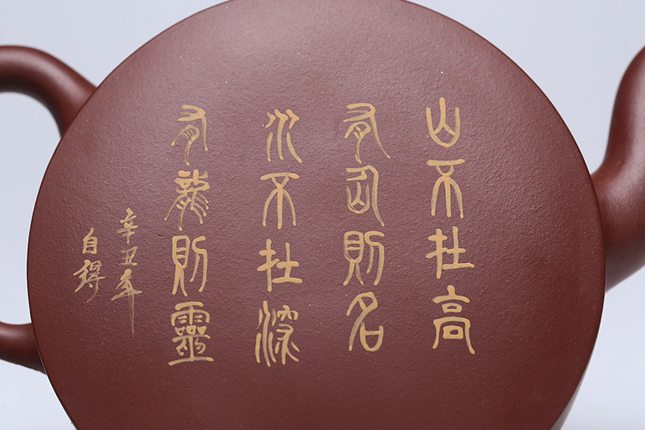 山不在高
有仙則名
水不在深
有龍則靈
辛丑年
自